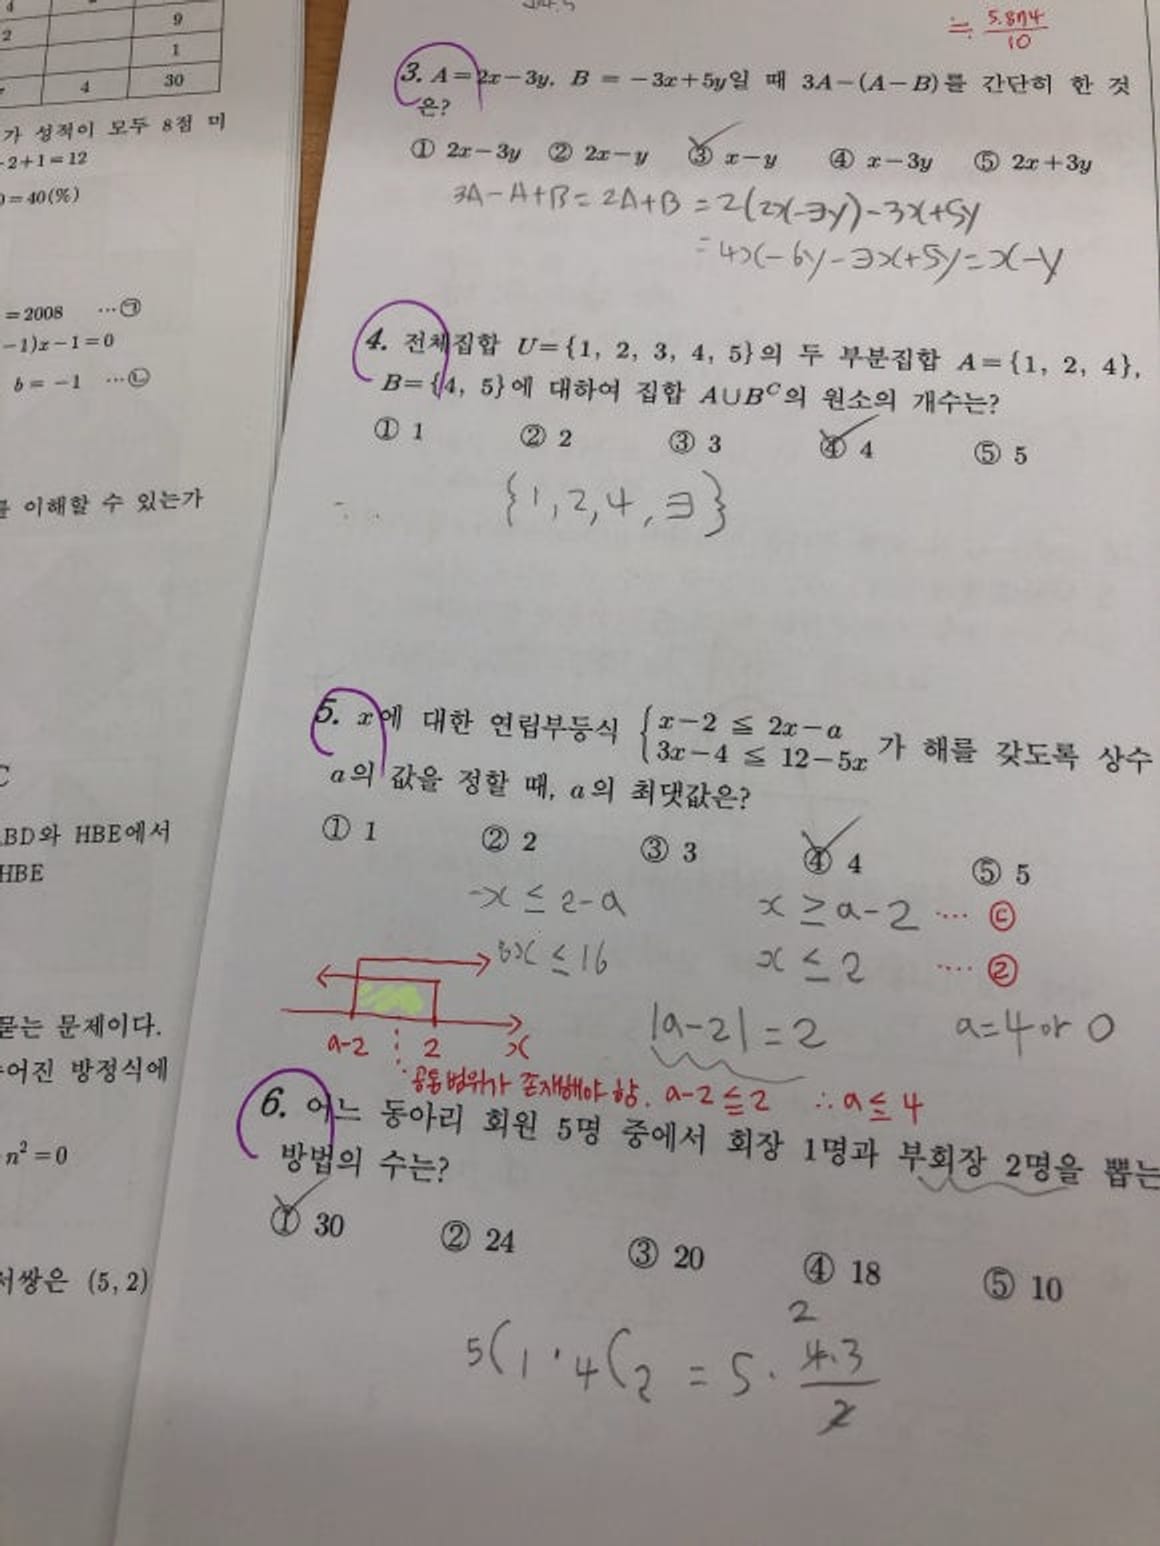 9
2
1
4 30
가 성적이 모두 8점 미
-2+1=12
=40(%)
=2008 …㉠
-1)x-1=0
b=-1 …㉡
를 이해할 수 있는가
C
BD와 HBE에서
HBE
묻는 문제이다.
어진 방정식에
n²=0
서쌍은 (5, 2)
≒ 5.8이4/10
3. A=2x-3y, B=-3x+5y일 때 3A-(A-B)를 간단히 한 것
은?
① 2x-3y ② 2x-y ③ x-y ④ x-3y ⑤ 2x+3y
3A-A+B=2A+B =2(2x-3y)-3x+5y
=4x-6y-3x+5y=x-y
4. 전체집합 U={1, 2, 3, 4, 5}의 두 부분집합 A={1, 2, 4},
B={4, 5}에 대하여 집합 A∪Bᶜ의 원소의 개수는?
① 1 ② 2 ③ 3 ④ 4 ⑤ 5
{1,2,4,3}
5. x에 대한 연립부등식 { x-2 ≦ 2x-a
3x-4 ≦ 12-5x 가 해를 갖도록 상수
a의 값을 정할 때, a의 최댓값은?
① 1 ② 2 ③ 3 ④ 4 ⑤ 5
-x ≤ 2-a x ≥ a-2 ····
8x ≤ 16 x ≤ 2 ···· ②
|a-2|=2 a=4 or 0
a-2 2 x
공통범위가 존재해야 함. a-2≦2 ∴a≦4
6. 어느 동아리 회원 5명 중에서 회장 1명과 부회장 2명을 뽑는
방법의 수는?
① 30 ② 24 ③ 20 ④ 18 ⑤ 10
2
5C1·4C2 = 5· 4·3/2